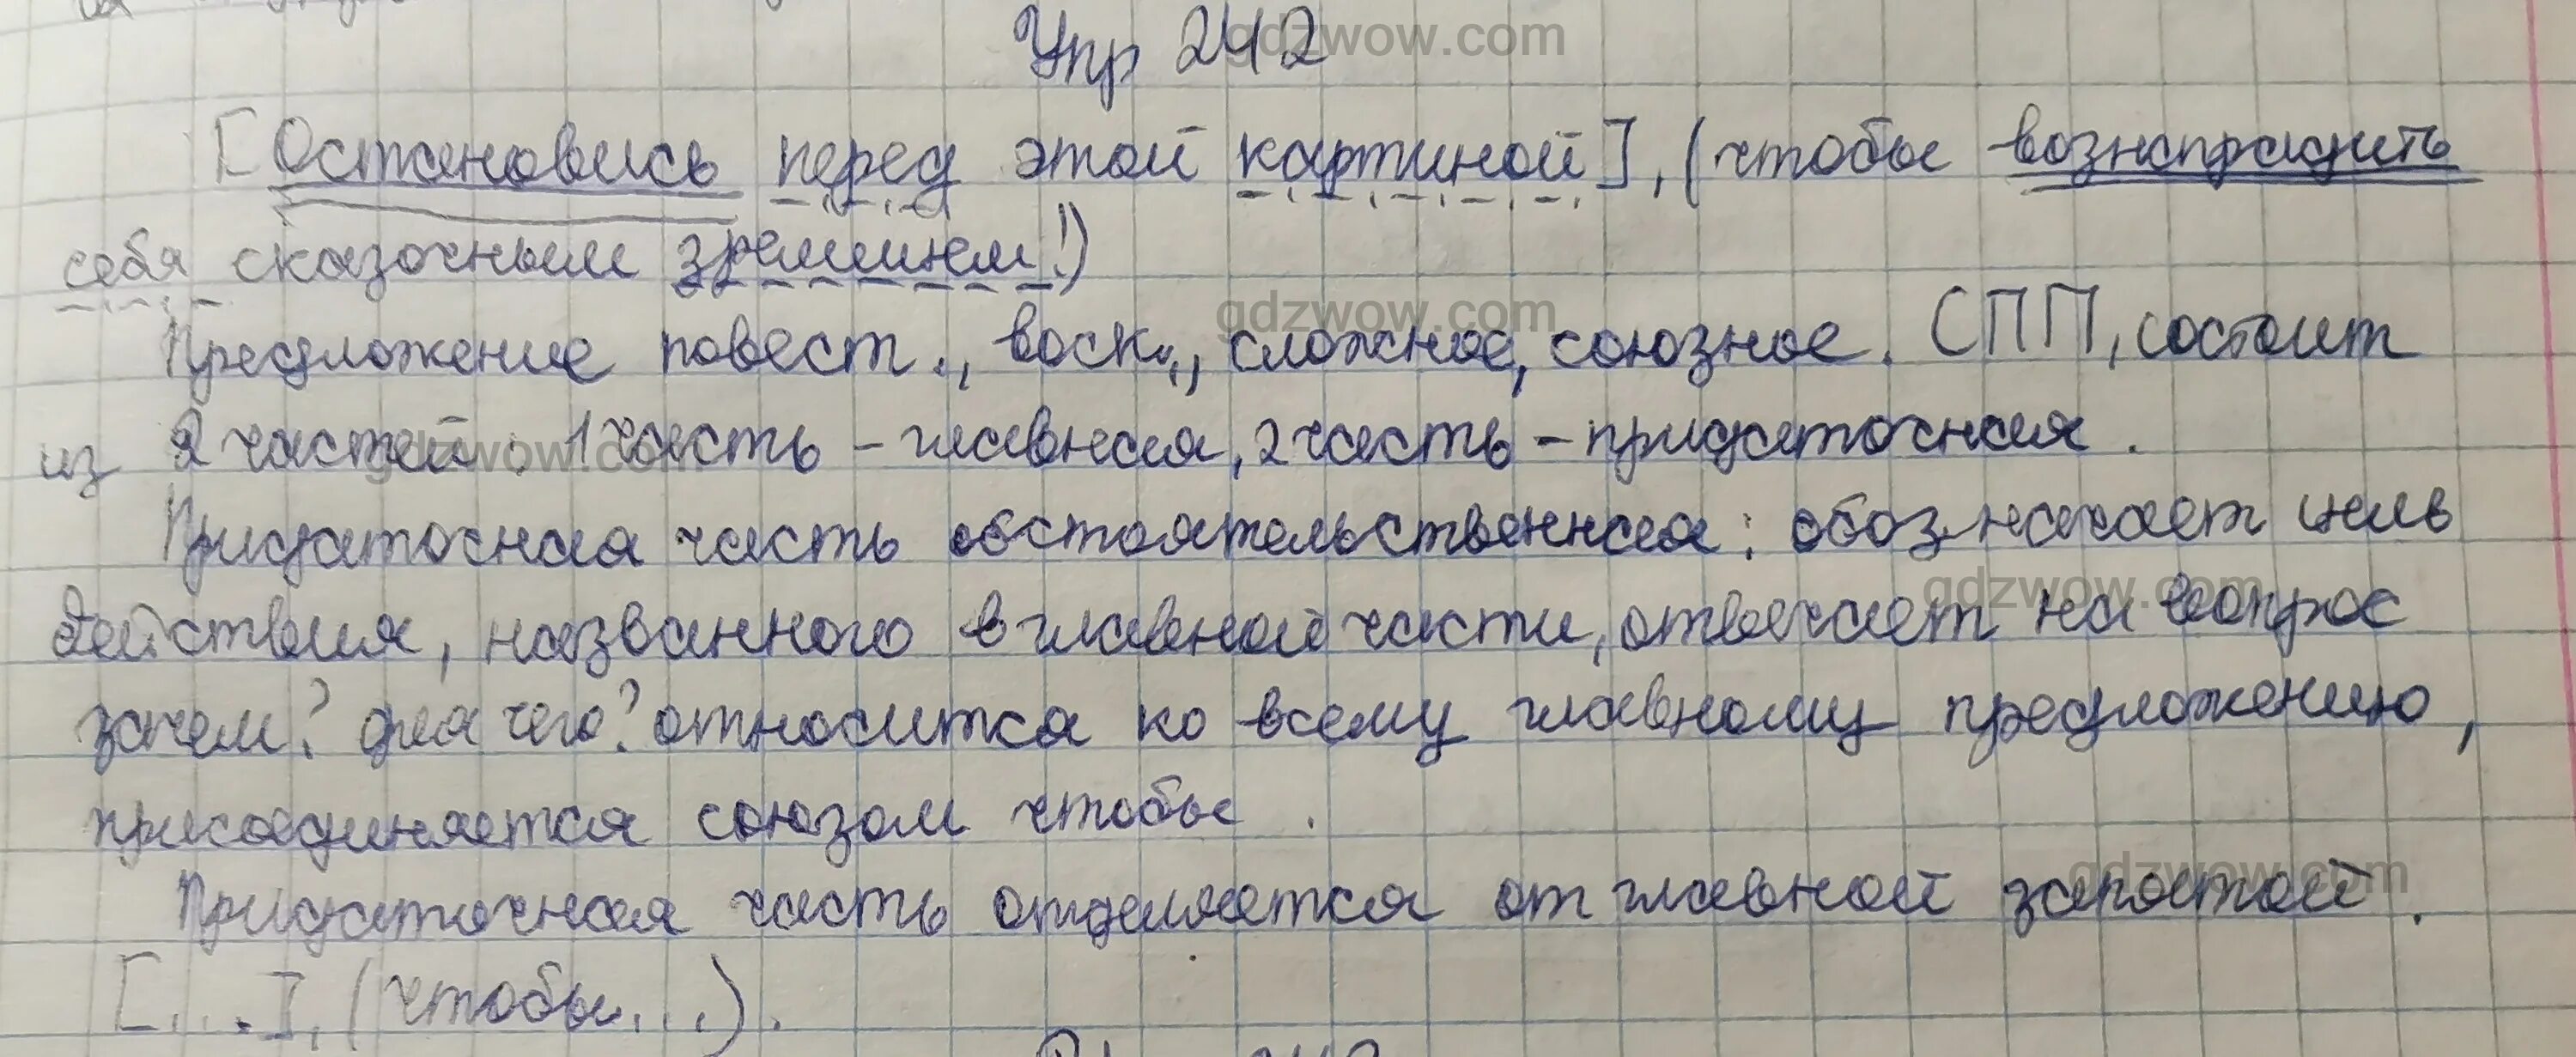 Упр 242
[Остановись перед этой картиной], (чтобы вознаградить
себя сказочным зрелищем!)
Предложение повест., воск., сложное, союзное. СПП, состоит
из 2 частей. 1 часть – главная, 2 часть – придаточная.
Придаточная часть обстоятельственная: обозначает цель
действия, названного в главной части, отвечает на вопрос
зачем? для чего? относится ко всему главному предложению,
присоединяется союзом чтобы.
Придаточная часть отделяется от главной запятой.
[...], (чтобы...).
gdzwow.com
gdzwow.com
gdzwow.com
gdzwow.com
gdzwow.com